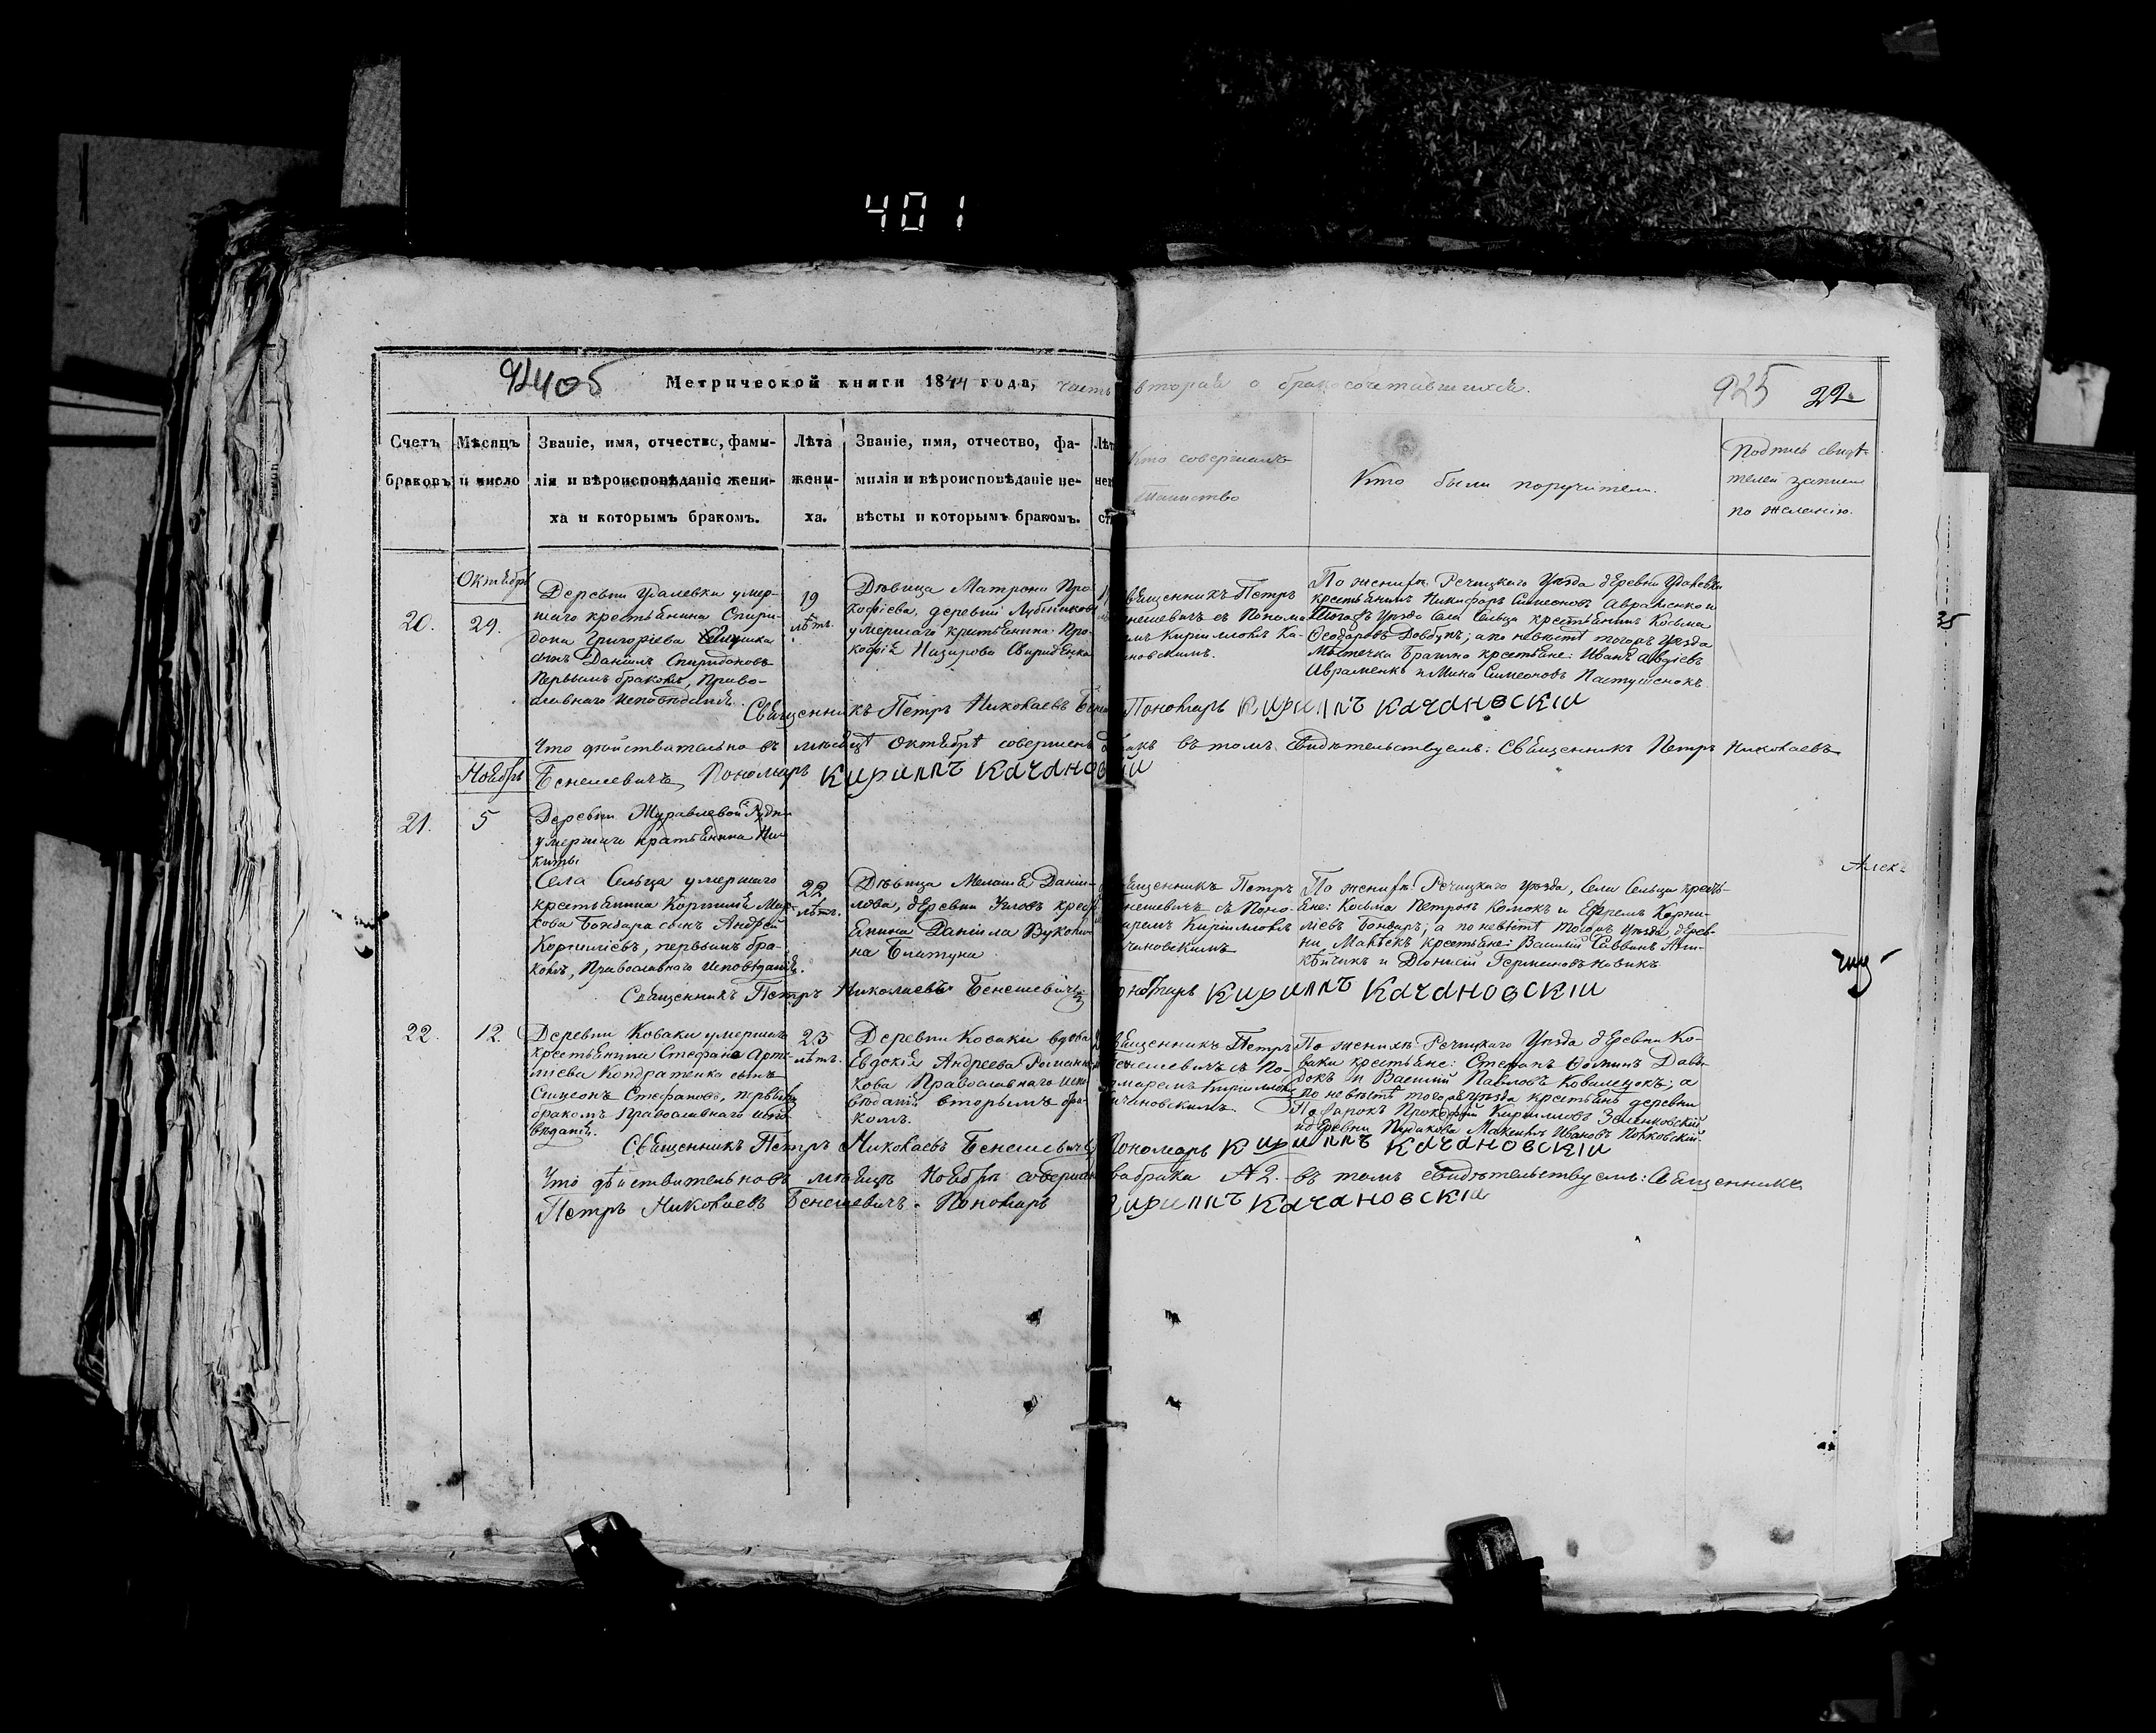 401
405
Метрической книги 1844 года, часть вторая о бракосочетавшихся.
925 22
Счетъ браковъ
Мѣсяцъ и число
Званіе, имя, отчество, фами-
лія и вѣроисповѣданіе жени-
ха и которымъ бракомъ.
Лѣта
жени-
ха.
Званіе, имя, отчество, фа-
милія и вѣроисповѣданіе не-
вѣсты и которымъ бракомъ.
Кто совершалъ
таинство
Кто были поручители.
Подпись свидѣ-
телей записи
по желанію.
Октябрь
20.
29.
Деревни умер-
шаго крестьянина Спири-
дона Григоріева
сынъ Даніилъ Спиридоновъ
первымъ бракомъ, Право-
славнаго исповѣданія.
19
лѣтъ.
Дѣвица Матрона Про-
кофіева, деревни
умершаго крестьянина Про-
кофія Назарова Свириденка
Священникъ Петръ
Бенешевичъ съ Понома-
ремъ Кирилломъ Ка-
чановскимъ.
По женихѣ Речицкаго Уѣзда деревни
крестьянинъ Никифоръ Симеоновъ Авраменко и
тогожъ Уѣзда села Сельца крестьянинъ Косьма
Ѳеодоровъ Довбунъ; а по невѣстѣ тогожъ Уѣзда
Мѣстечка Брагина крестьяне: Иванъ Авдіевъ
Авраменко и Мина Симеоновъ Пастушенокъ.
Священникъ Петръ Николаевъ Пономарь Кириллъ Качановскій
Что дѣйствительно въ мѣсяцѣ Октябрѣ совершенъ бракъ въ томъ свидѣтельствуемъ: Священникъ Петръ Николаевъ
Ноябрь
Бенешевичъ, Пономарь Кириллъ Качановскій
21.
5
Деревни Журавлевой Рудни
умершаго крестьянина Ни-
киты
Села Сельца умершаго
крестьянина Корнилія Мар-
кова Бондара сынъ Андрей
Корниліевъ, первымъ бра-
комъ, Православнаго исповѣданія.
22
лѣтъ.
Дѣвица Меланія Даніи-
лова, деревни Угловъ кресть-
янина Даніила
на
Священникъ Петръ
Бенешевичъ съ Поно-
маремъ Кирилломъ
Качановскимъ
По женихѣ Речицкаго Уѣзда, Села Сельца кресть-
яне: Косьма Петровъ Комокъ и Ефремъ Корни-
ліевъ Бондаръ; а по невѣстѣ тогожъ Уѣзда, дерев-
ни крестьяне: Василій Саввинъ
и Діонисій Германовъ Новикъ
Алек-
Священникъ Петръ Николаевъ Бенешевичъ Пономарь Кириллъ Качановскій
22.
12.
Деревни Коваки умершаго
крестьянина Стефана Арте-
міева Кондратенка сынъ
Симеонъ Стефановъ, первымъ
бракомъ Православнаго испо-
вѣданія.
23
лѣтъ.
Деревни Коваки вдова
Евдокія Андреева Роман-
кова Православнаго испо-
вѣданія вторымъ бра-
комъ.
Священникъ Петръ
Бенешевичъ съ По-
номаремъ Кирилломъ
Качановскимъ
По женихѣ Речицкаго Уѣзда деревни Ко-
ваки крестьяне: Стефанъ Ѳоминъ Давы-
докъ и Василій Павловъ Ковалецокъ; а
по невѣстѣ тогожъ Уѣзда крестьянъ деревни
Прокофій Кирилловъ Зеленковскій
и деревни Ивановъ
Священникъ Петръ Николаевъ Бенешевичъ, Пономарь Кириллъ Качановскій
Что дѣйствительно въ мѣсяцѣ Ноябрѣ совершено два брака № 2. въ томъ свидѣтельствуемъ: Священникъ
Петръ Николаевъ Бенешевичъ. Пономарь Кириллъ Качановскій